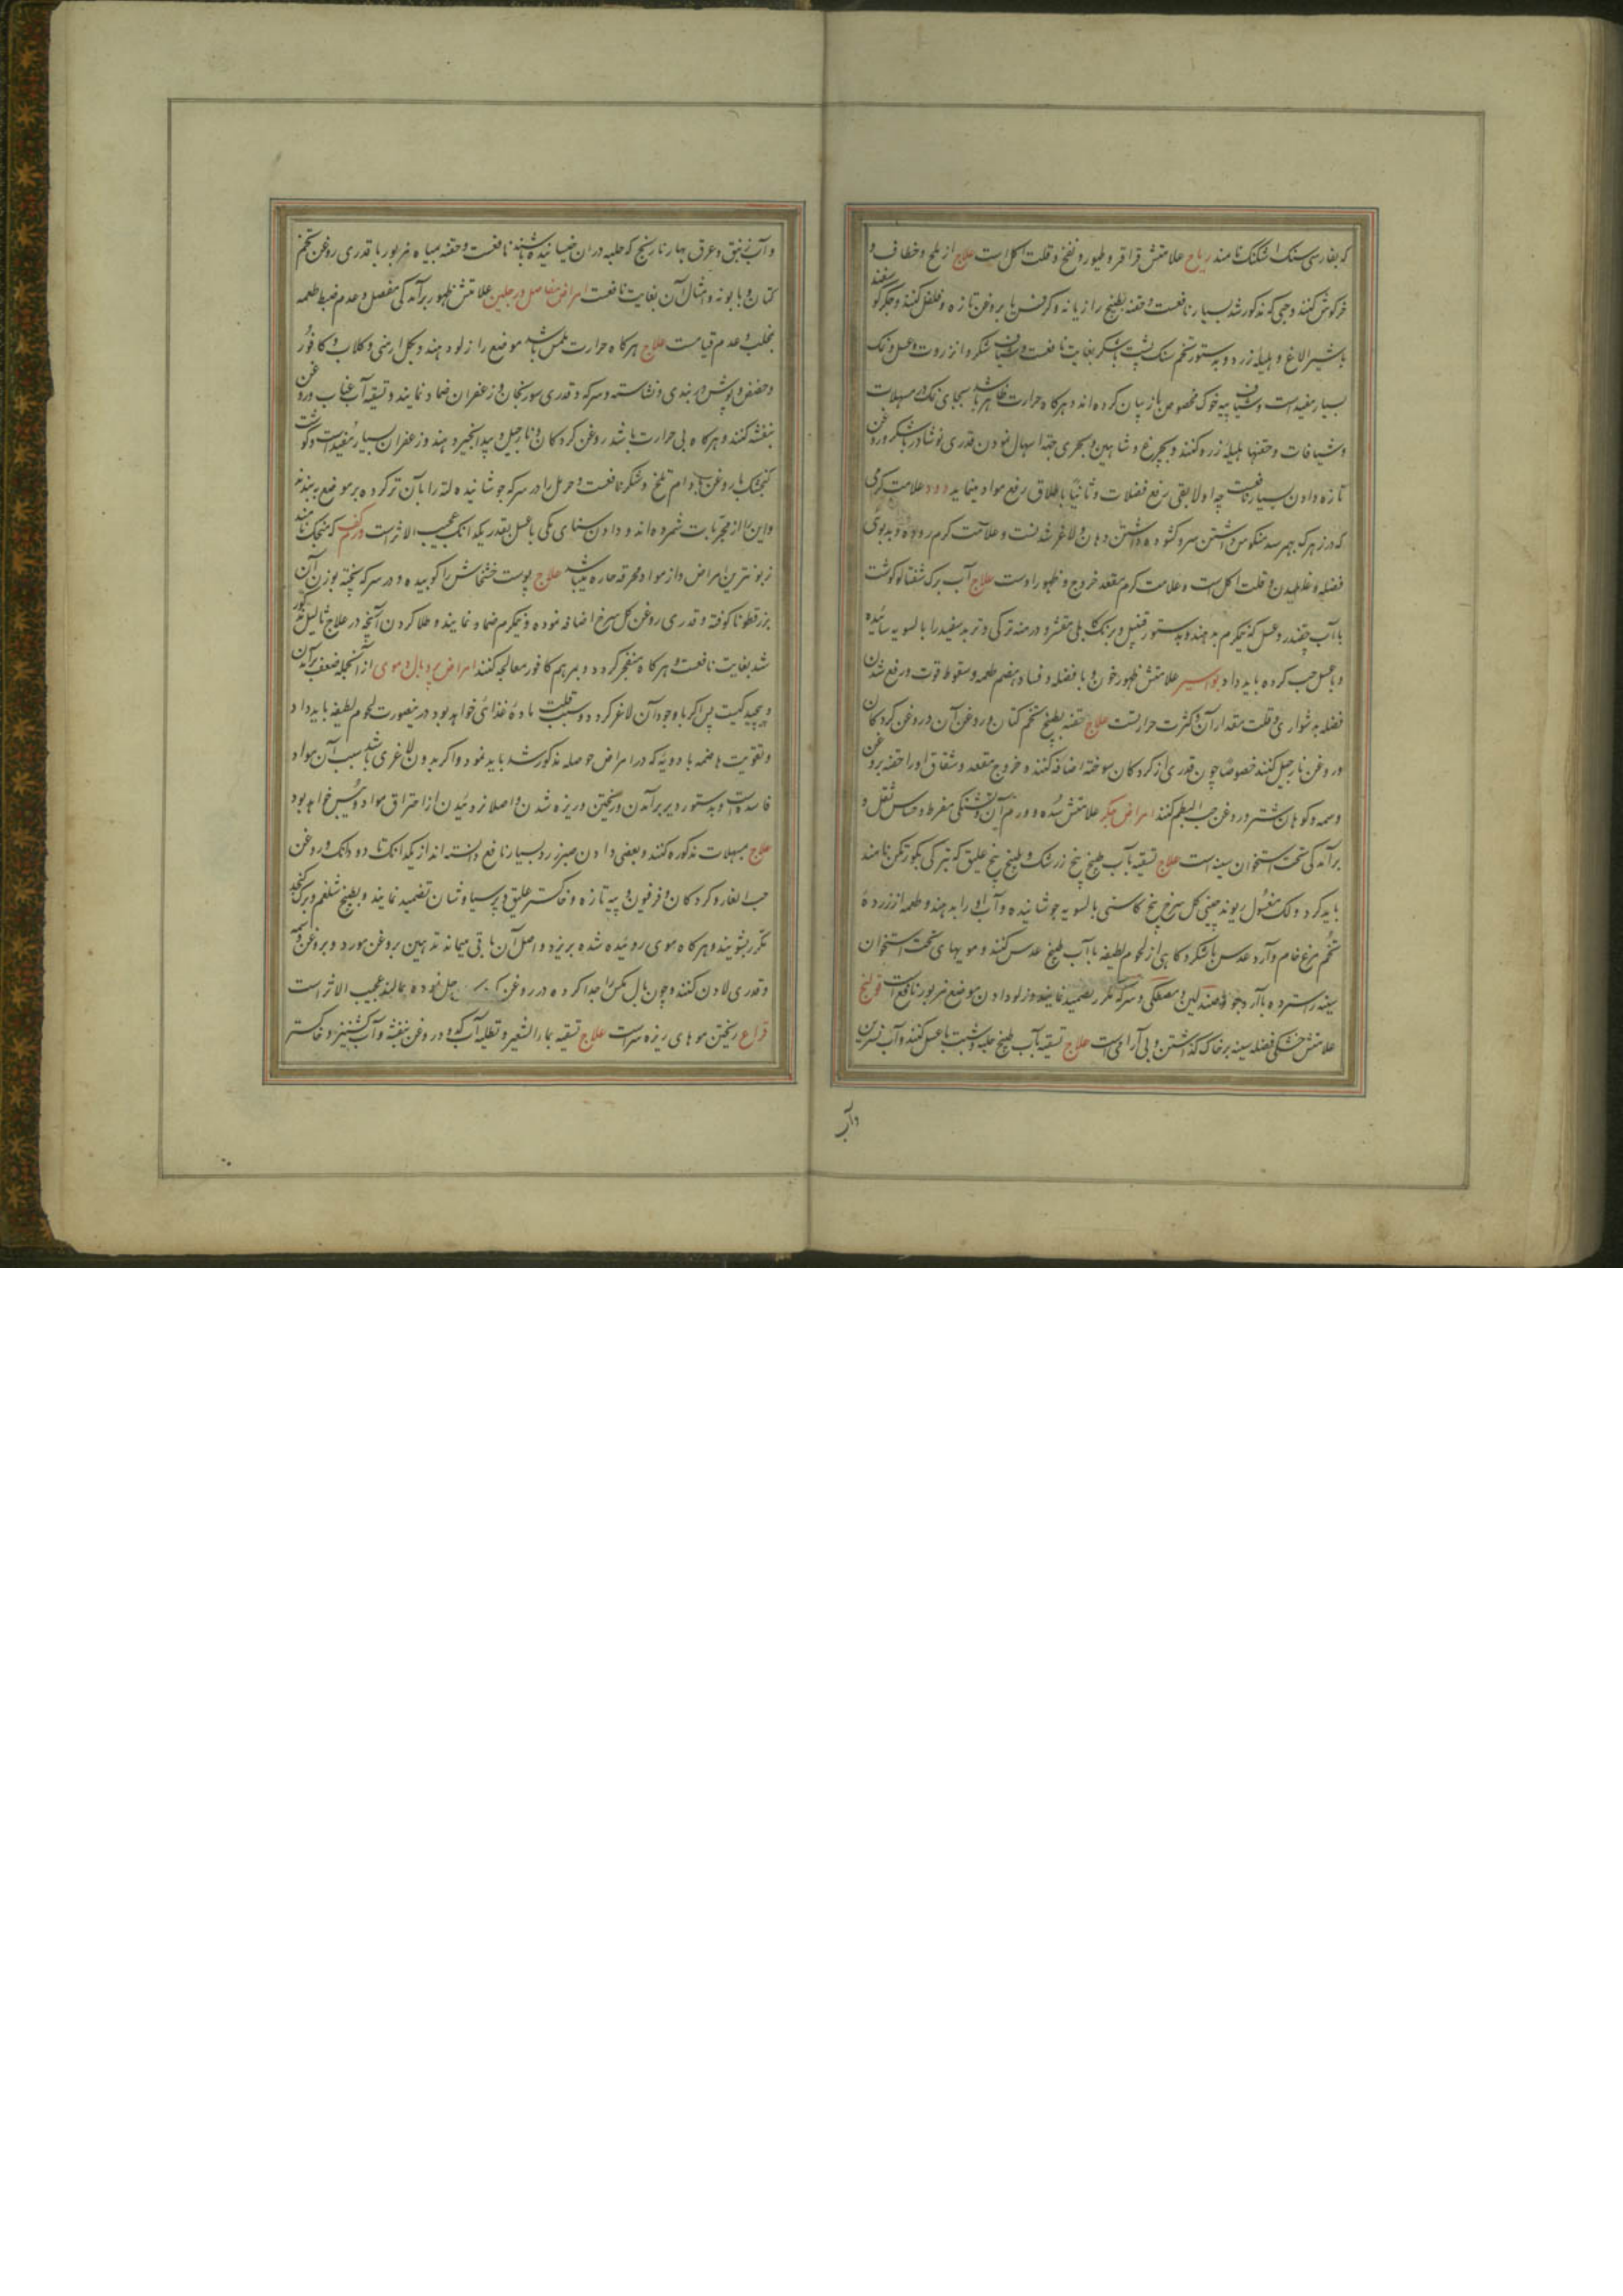 که بفارسی سنک اشکنک نامند ریاح علامتش قراقر و طیور و نفخ و قلت اکل است علاج از بلح و خطاف و
خرکوش کنند و حبی که مذکور شد بسیار نافعست و حقنه بطبیخ رازیانه و کرفس با روغن تازه و فلفل کنند و جکر کوسفند
با شیر الاغ و هلیله زرد و بدستور تخم سنک پشت با شکر بغایت نافعست و شیاف شکر و انزروت و عسل و نمک
بسیار مفید است و شیاف پیه خوک مخصوص باز بیان کرده اند و هرکاه حرارت ظاهر باشد بجای نمک در مسهلات
و شیافات و حقنها هلیله زرد کنند و بچرغ و شاهین و بحری جهة اسهال نمودن قدری نوشادر با شکر و روغن
تازه دادن بسیار نافعست چه اولا بقی رفع فضلات و ثانیا باطلاق رفع مواد مینماید دود علامت کرمی
که در زهرک بهم رسد منکوس داشتن سر و کشوده داشتن دهان و لاغر شدنست و علامت کرم روده بدبوی
فضله و غلطیدن و قلت اکل است و علامت کرم مقعد خروج و ظهور اوست علاج آب برک شفتالو کوشت
با آب چقندر و عسل که نیمکرم بدهند و بدستور قنبیل و برنک کابلی مقشر و درمنه ترکی و تربد سفید را بالسویه سائیده
و با عسل حب کرده باید داد بواسیر علامتش ظهور خون با فضله و فساد هضم طعمه و سقوط قوت و رفع شدن
فضله بدشواری و قلت مقدار آن و کثرت حرارتست علاج حقنه بطبیخ تخم کتان و روغن آن و روغن کردکان
و روغن نارجیل کنند خصوصا چون قدری از کردکان سوخته اضافه کنند و خروج مقعد و شقاق او را حقنه بروغن
وسمه و کوهان شتر و روغن حب البطم کنند امراض جکر علامتش سده و ورم آن تشنکی مفرط و حبس ثقل و
برآمدکی تحت استخوان سینه است علاج تسقیه بآب طبیخ بیخ زرشک و طبیخ بیخ علیق که بترکی بکورتکن نامند
باید کرد و لک مغسول ریوند چینی کل سرخ بیخ کاسنی بالسویه جوشانیده و آب او را بدهند و طعمه از زرده
تخم مرغ خام و آرد عدس با شکر و کاهی از لحوم لطیفه با آب طبیخ عدس کنند و مویهای تحت استخوان
سینه را سترده با آرد جو و صندلین و مصطکی و سرکه مکرر تضمید نمایند و زلو دادن موضع مزبور نافع است قولنج
علامتش خشکی فضله سینه بر خاک کذاشتن و بی آرامی است علاج تسقیه بآب طبیخ حلبه و شبت با عسل کنند و آب نسرین
و آب
و آب زنبق و عرق بهار نارنج که حلبه در ان خیسانیده باشند نافعست و حقنه بمیاه مزبور با قدری روغن تخم
کتان و بابونه و امثال آن بغایت نافعست امراض مفاصل و رجلین علامتش ظهور برآمدکی مفصل و عدم ضبط طعمه
بمخلب و عدم قیامست علاج هرکاه حرارت ملمس باشد موضع را زلو دهند و بکل ارمنی و کلاب و کافور
و حضض و بوش دربندی و نشاسته و سرکه و قدری سورنجان و زعفران ضماد نمایند و تسقیه آب عناب و روغن
بنفشه کنند و هرکاه بی حرارت باشد روغن کردکان و نارجیل و بیدانجیر دهند و زعفران بسیار مفید است و کوشت
کنجشک با روغن بادام تلخ و شکر نافعست و حرمل را در سرکه جوشانیده لته را بآن تر کرده بر موضع بندند
و این را از مجربات شمرده اند و دادن سنای مکی با عسل بقدر یکدانک عجیب الاثر است در کف که میخک نامند
زبونترین امراض و از مواد محرقه حاره میباشد علاج پوست خشخاش را کوبیده و در سرکه پخته بوزن آن
بزرقطونا کوفته و قدری روغن کل سرخ اضافه نموده و نیمکرم ضماد نمایند و طلا کردن آنچه در علاج ثالیل مذکور
شد بغایت نافعست و هرکاه منفجر کردد و بمرهم کافور معالجه کنند امراض پر و بال و موی از آنجمله ضعف برآمدن
و پیچیدکیست پس اکر با وجود آن لاغر کردد و سبب قلت ماده غذائی خواهد بود در ینصورت لحوم لطیفه باید داد
و تقویت هاضمه بادویه که در امراض حوصله مذکور شد باید نمود و اکر بدون لاغری باشد سبب آن مواد
فاسده است و بدستور دیر برآمدن و ریختن و ریزه شدن و اصلا نروئیدن از احتراق مواد و یبس خواهد بود
علاج مسهلات مذکوره کنند و بعضی دادن صبر زرد بسیار نافع دانسته اند از یکدانک تا دو دانک و روغن
حب الغار و کردکان و فرفیون و پیه تازه و خاکستر علیق و پرسیاوشان تضمید نمایند و بطبیخ شلغم و برک کنجد
مکرر بشویند و هرکاه موی روئیده شده بریزد و اصل آن باقی میمانه تدهین بروغن مورد و بروغن وسمه
و قدری لادن کنند و چون بال مکس را جدا کرده در روغن حل نموده بمالند عجیب الاثر است
قراع ریختن موهای ریزه سر است علاج تسقیه بماء الشعیر و تطلیه آب کدو و روغن بنفشه و آب کشنیز و خاکستر